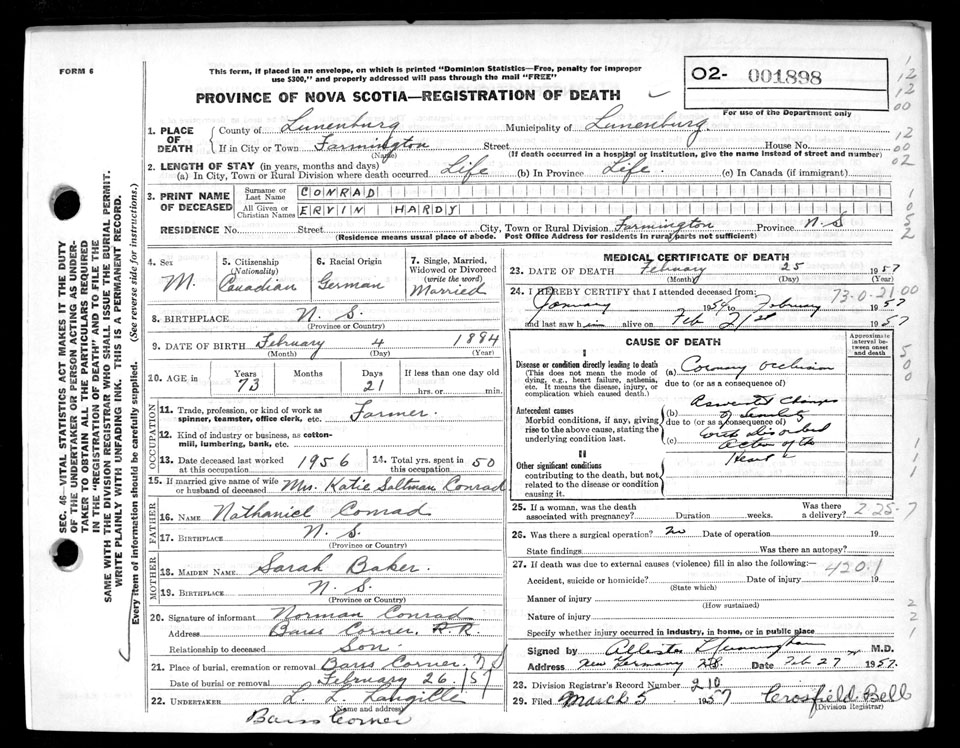 FORM 6
This form, if placed in an envelope, on which is printed "Dominion Statistics—Free, penalty for improper
use $300," and properly addressed will pass through the mail "FREE"
PROVINCE OF NOVA SCOTIA—REGISTRATION OF DEATH
O2- 001898
For use of the Department only
1. PLACE OF DEATH
County of Lunenburg Municipality of Lunenburg
If in City or Town Farmington Street House No.
(Name) (If death occurred in a hospital or institution, give the name instead of street and number)
2. LENGTH OF STAY (in years, months and days)
(a) In City, Town or Rural Division where death occurred Life (b) In Province Life. (c) In Canada (if immigrant)
3. PRINT NAME OF DECEASED
Surname or Last Name CONRAD
All Given or Christian Names ERVIN HARDY
RESIDENCE No. Street City, Town or Rural Division Farmington Province N.S
(Residence means usual place of abode. Post Office Address for residents in rural parts not sufficient)
4. Sex M.
5. Citizenship (Nationality) Canadian
6. Racial Origin German
7. Single, Married, Widowed or Divorced (write the word) Married
8. BIRTHPLACE N. S.
(Province or Country)
9. DATE OF BIRTH February 4 1894
(Month) (Day) (Year)
10. AGE in Years 73 Months Days 21 If less than one day old hrs. or min.
OCCUPATION
11. Trade, profession, or kind of work as spinner, teamster, office clerk, etc. Farmer.
12. Kind of industry or business, as cotton-mill, lumbering, bank, etc.
13. Date deceased last worked at this occupation 1956 14. Total yrs. spent in this occupation 50
15. If married give name of wife or husband of deceased Mrs. Katie Saltman Conrad
FATHER
16. NAME Nathaniel Conrad
17. BIRTHPLACE N. S.
(Province or Country)
MOTHER
18. MAIDEN NAME Sarah Baker.
19. BIRTHPLACE N. S.
(Province or Country)
20. Signature of informant Norman Conrad
Address Barss Corner, R.R.
Relationship to deceased Son.
21. Place of burial, cremation or removal Barss Corner, N S
Date of burial or removal February 26. 157
22. UNDERTAKER L. L. Langille
(Name and address)
Barss Corner
MEDICAL CERTIFICATE OF DEATH
23. DATE OF DEATH February 25 1957
(Month) (Day) (Year)
24. I HEREBY CERTIFY that I attended deceased from: 73-0-21 00
January 1954 to February 1957
and last saw him alive on Feb 21st 1957
CAUSE OF DEATH
Approximate interval between onset and death
I
Disease or condition directly leading to death
(This does not mean the mode of dying, e.g., heart failure, asthenia, etc. It means the disease, injury, or complication which caused death.)
(a) Coronary occlusion
due to (or as a consequence of)
Antecedent causes
Morbid conditions, if any, giving rise to the above cause, stating the underlying condition last.
(b) Changes
of Senility
due to (or as a consequence of)
(c) with disordered
action of the
Heart
II
Other significant conditions
contributing to the death, but not related to the disease or condition causing it.
25. If a woman, was the death associated with pregnancy? Duration weeks. Was there a delivery? 2 25-7
26. Was there a surgical operation? No Date of operation 19
State findings Was there an autopsy?
27. If death was due to external causes (violence) fill in also the following:— 420.1
Accident, suicide or homicide? Date of injury 19
(State which)
Manner of injury
(How sustained)
Nature of injury
Specify whether injury occurred in industry, in home, or in public place
Signed by M.D.
Address New Germany N.S. Date Feb 27 1957.
28. Division Registrar's Record Number 210
29. Filed March 5 1957 Crosfield Bell
(Division Registrar)
SEC. 46—VITAL STATISTICS ACT MAKES IT THE DUTY
OF THE UNDERTAKER OR PERSON ACTING AS UNDER-
TAKER TO OBTAIN ALL THE PARTICULARS REQUIRED
IN THE "REGISTRATION OF DEATH" AND TO FILE THE
SAME WITH THE DIVISION REGISTRAR WHO SHALL ISSUE THE BURIAL PERMIT.
WRITE PLAINLY WITH UNFADING INK. THIS IS A PERMANENT RECORD.
Every item of information should be carefully supplied. (See reverse side for instructions.)